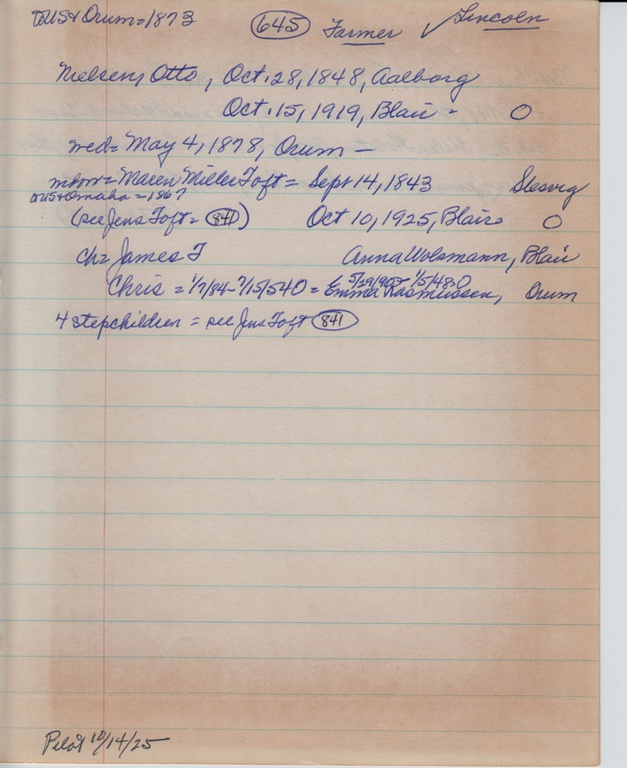 to US & Orum = 1873 645 Farmer ✓ Lincoln
Nielsen, Otto, Oct. 28, 1848, Aalborg
Oct. 15, 1919, Blair - O
wed = May 4, 1878, Orum -
Maren Miller Toft = Sept 14, 1843 Slesvig
to US & Omaha = 1867
(see Jens Toft = 841) Oct 10, 1925, Blair = O
ch = James T Anna Wolsmann, Blair
5/29/90
Chris = 1/7/84 - 7/15/54 O = Emma Rasmussen, Orum
4 stepchildren = see Jens Toft 841
Pilot 10/14/25